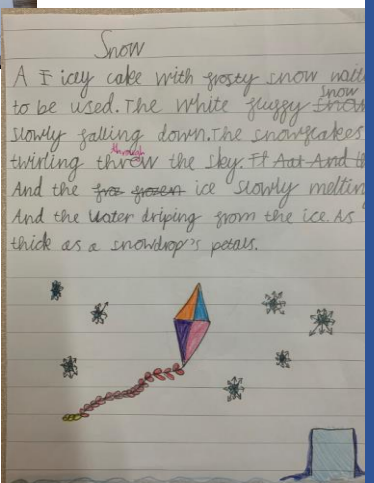 Snow
A I icey cake with frosty snow
to be used. The white fluggy snow
slowly falling down. The snowflakes
twirling through the sky. It Aat And
And the froz frozen ice slowly melting
And the water driping from the ice. As
thick as a snowdrop's petals.